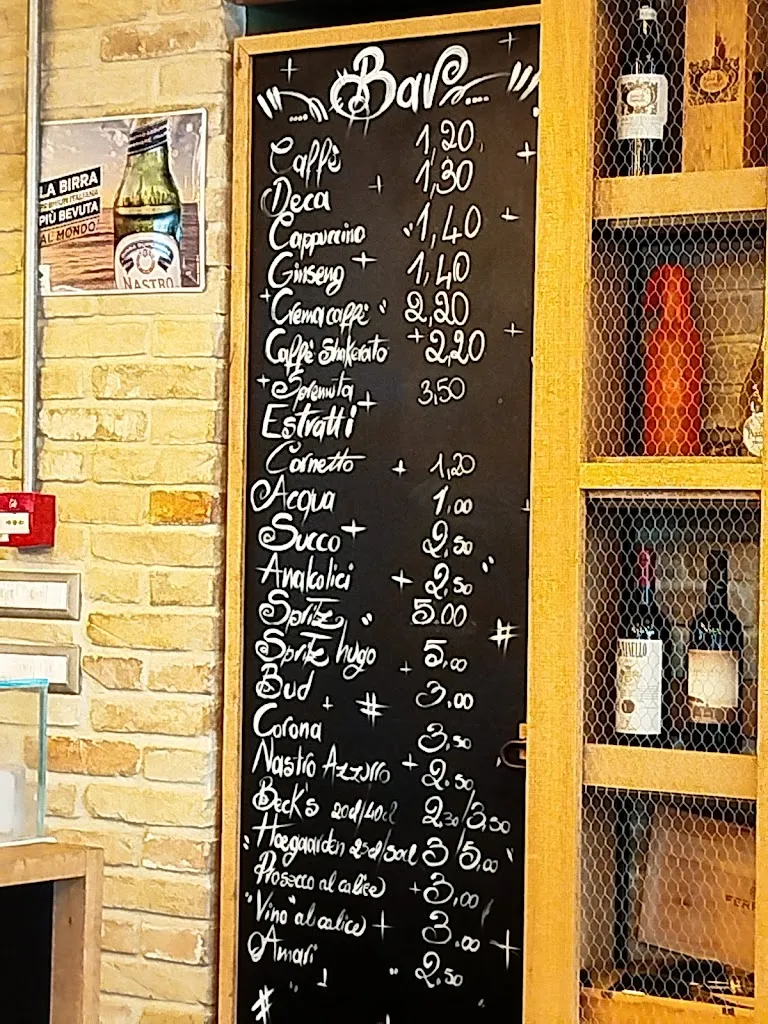 Bar
Caffè 1,20
Deca 1,30
Cappuccino 1,40
Ginseng 1,40
Crema caffè 2,20
Caffè Shakerato 2,20
Spremuta 3,50
Estratti
Cornetto 1,20
Acqua 1,00
Succo 2,50
Analcolici 2,50
Spritz 5.00
Spritz hugo 5,00
Bud 3.00
Corona 3,50
Nastro Azzurro 2.50
Beck's 20cl/40cl 2,30/3,50
Hoegaarden 25cl/50cl 3/5,00
Prosecco al calice 3,00
"Vino" al calice 3.00
Amari 2.50
LA BIRRA
PIÙ BEVUTA
AL MONDO
NASTRO